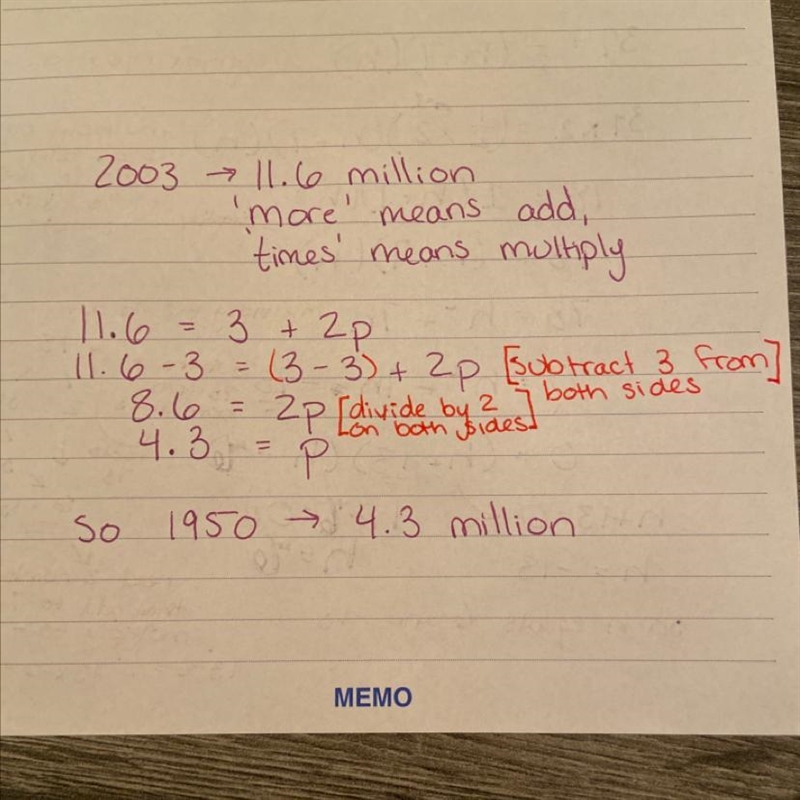 2003 → 11.6 million
'more' means add,
'times' means multiply
11.6 = 3 + 2p
11.6 - 3 = (3 - 3) + 2p [subtract 3 from]
both sides
8.6 = 2p [divide by 2
on both sides]
4.3 = p
So 1950 → 4.3 million
MEMO